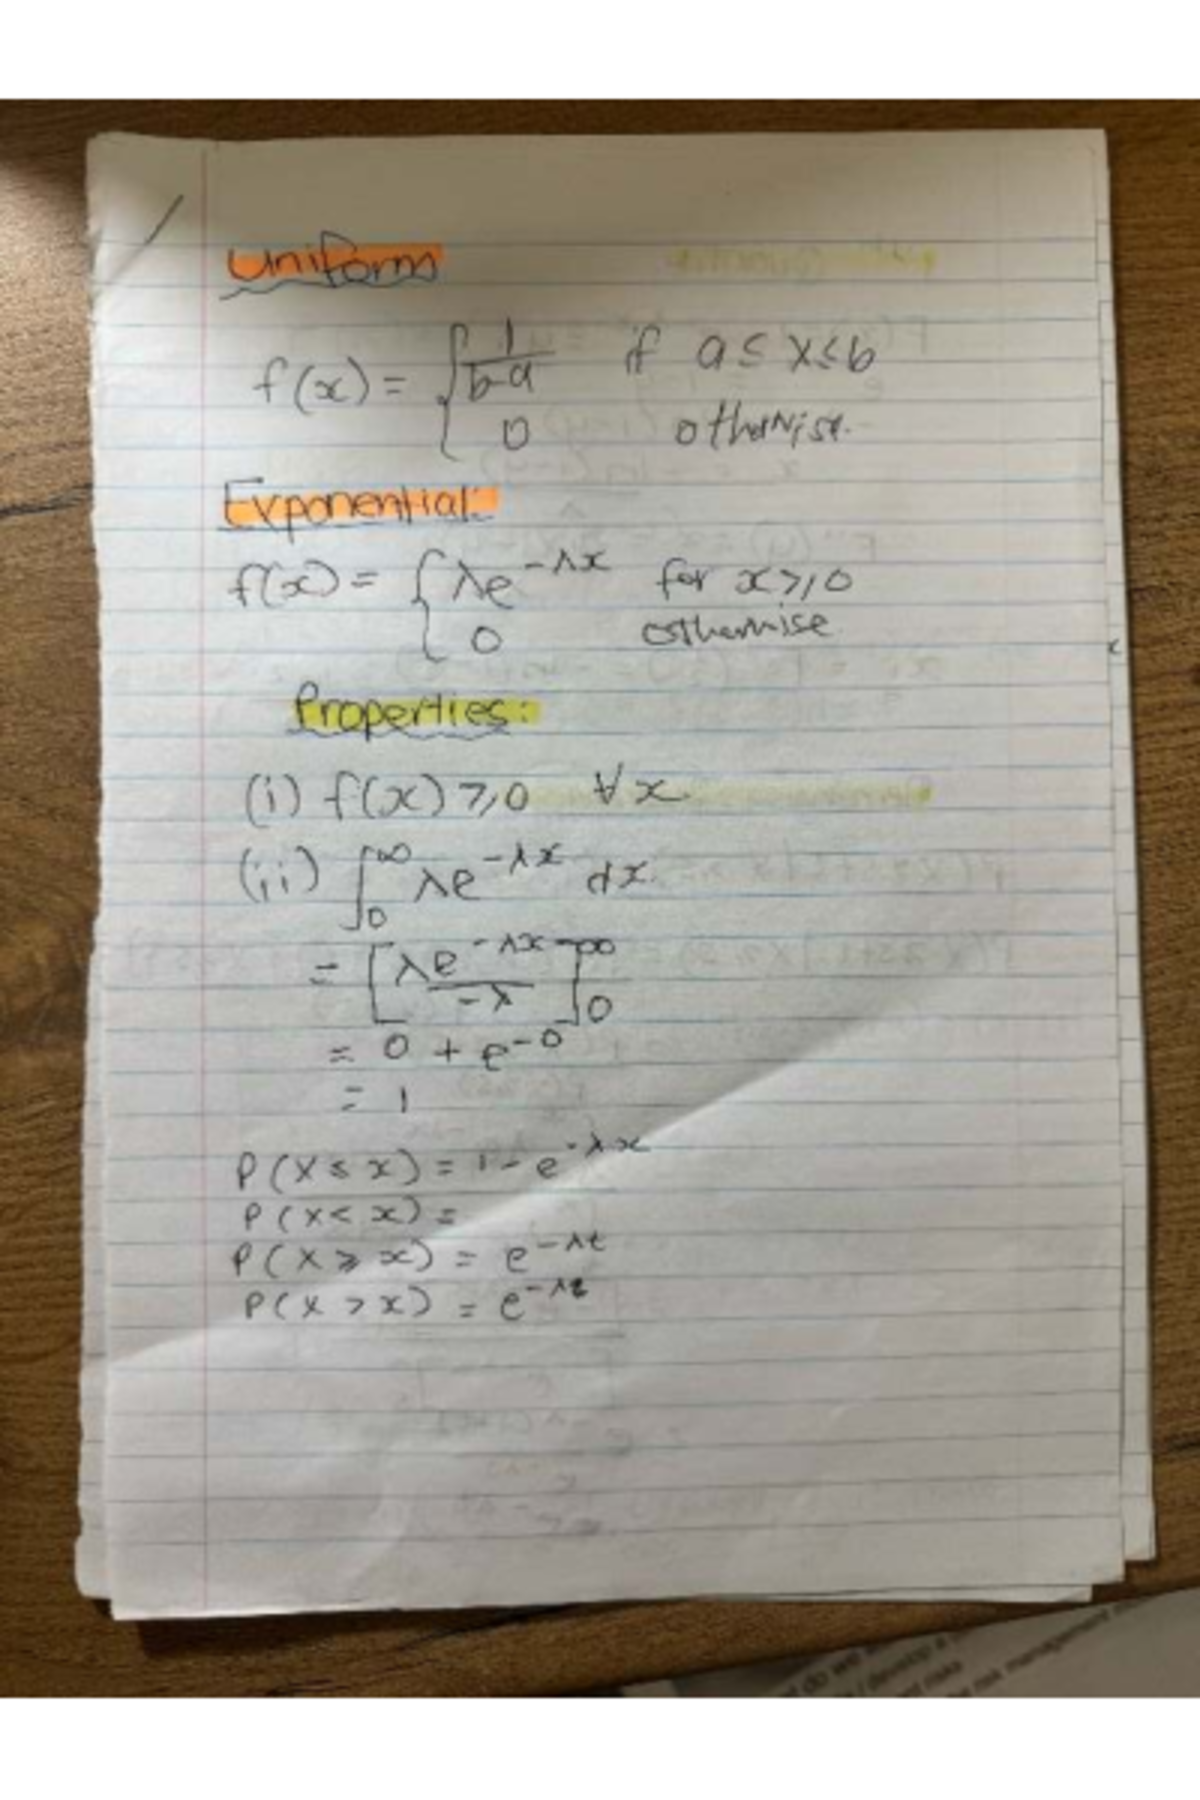 Uniform
f(x) = { 1/b-a if a ≤ x ≤ b
0 otherwise.
Exponential:
f(x) = { λe^-λx for x ≥ 0
0 otherwise
Properties:
(i) f(x) ≥ 0 ∀ x
(ii) ∫_0^∞ λe^-λx dx.
= [λe^-λx / -λ]_0^∞
= 0 + e^-0
= 1
P(X ≤ x) = 1 - e^-λx
P(X < x) =
P(X ≥ x) = e
P(X > x) = e
risk management